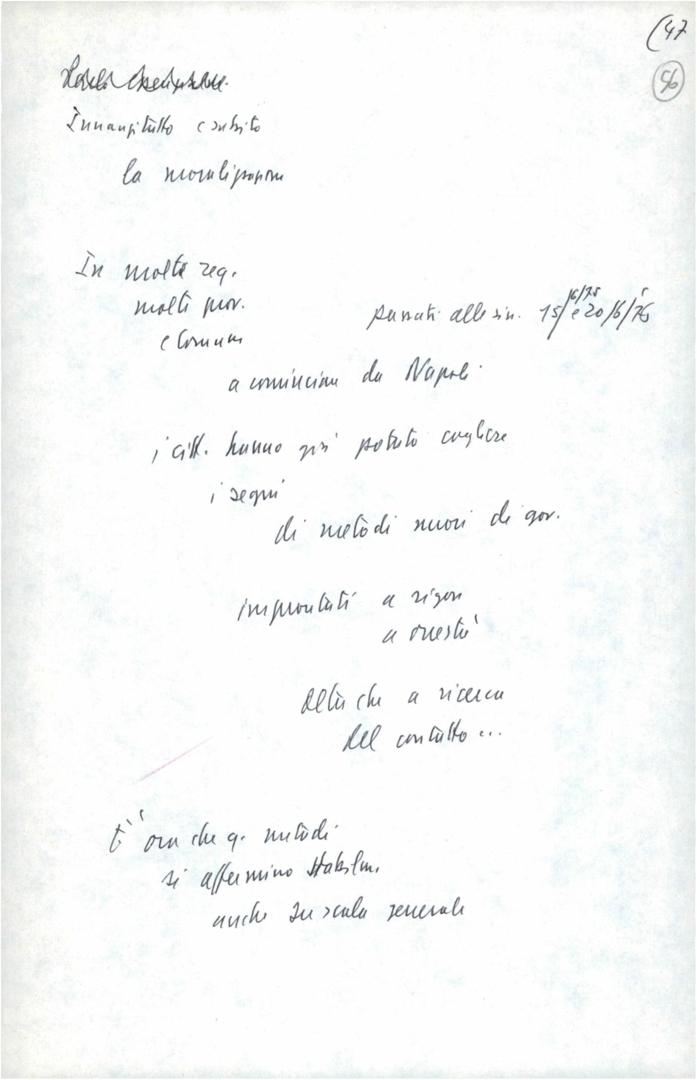 (47
56
Innanzitutto contrito
la moralizzazione
In molte reg.
molti prov.
e Comuni
passati alle sin. 15/6/75 e 20/6/76
a cominciare da Napoli
i citt. hanno già potuto cogliere
i segni
di metodi nuovi di gov.
improntati a rigore
a onestà
oltre che a ricerca
del contatto...
E' ora che q. metodi
si affermino stabilm.
anche su scala generale